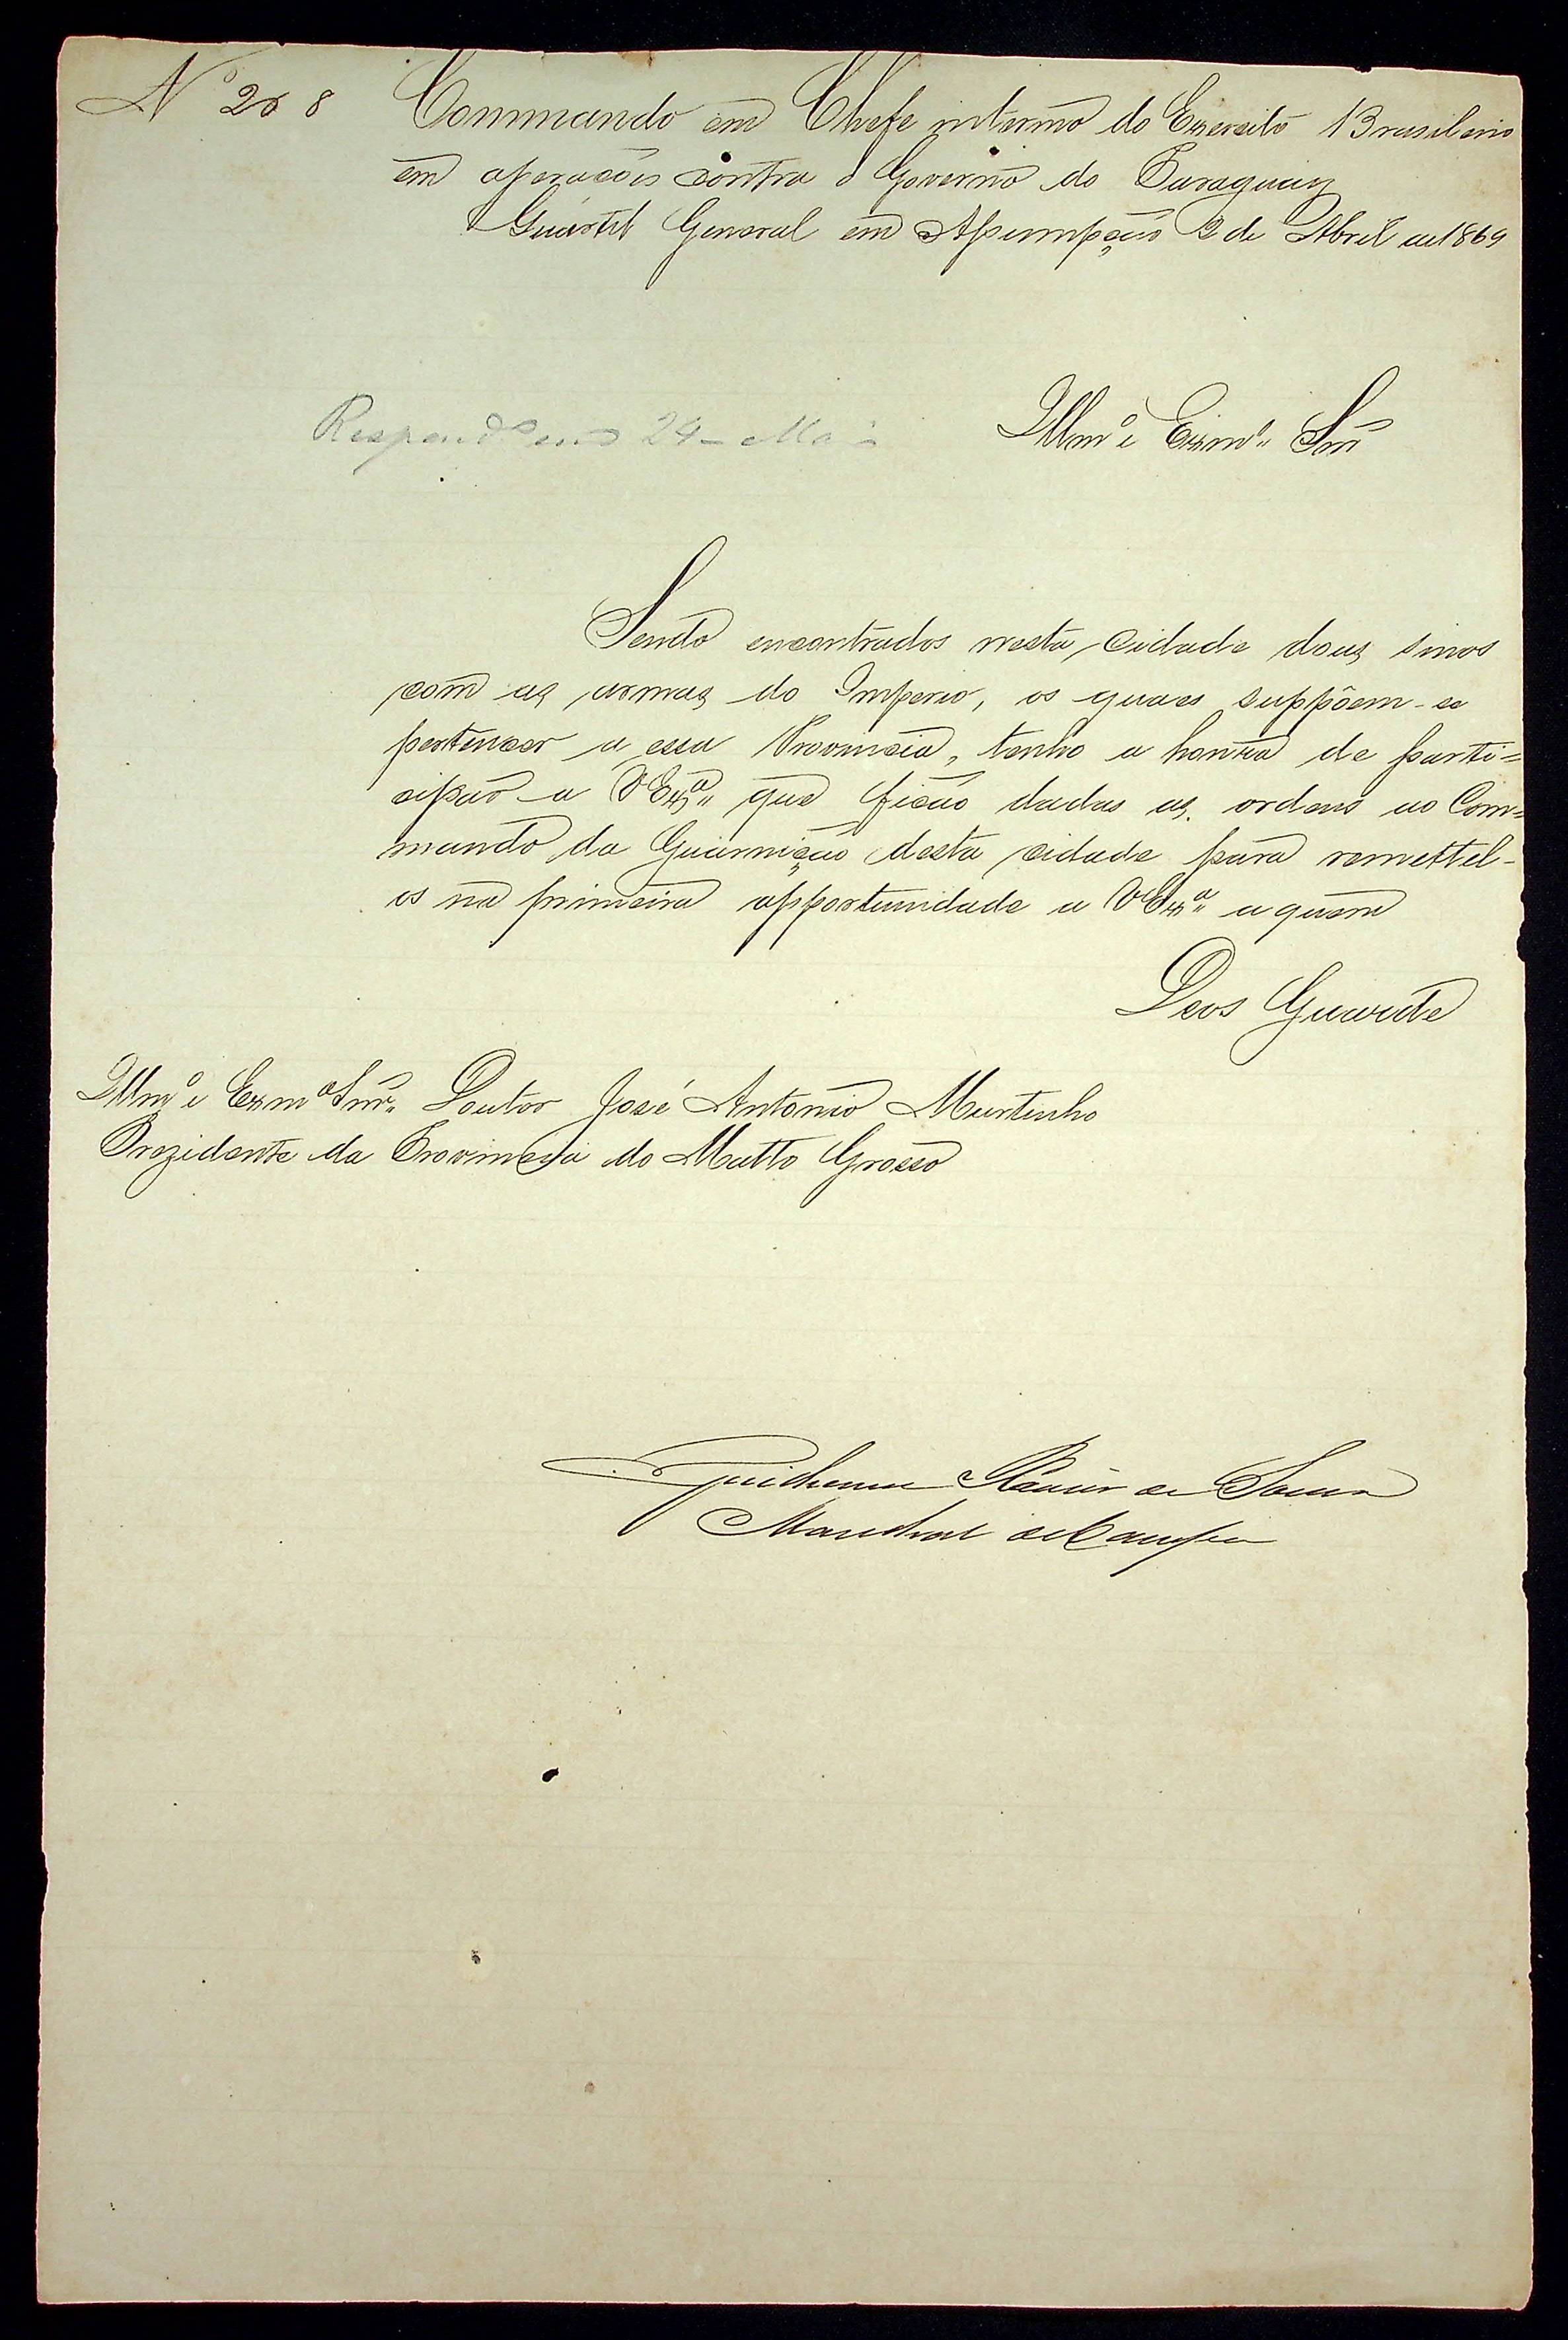 Nº 208 Commando em Chefe interino do Exercito Brasileiro
em operacões contra o Governo do Paraguay
Quartel General em Assumpção 2 de Abril de 1869
Respondº em 24 - Maio
Illmº e Exmº Snr
Sendo encontrados nesta cidade dous sinos
com as armas do Imperio, os quaes suppõem-se
pertencer a essa Provincia, tenho a honra de parti=
cipar a VExª que ficão dadas as ordens ao Com=
mando da Guarnição desta cidade para remettel-
os na primeira opportunidade a VExª a quem
Deos Guarde
Illmº e Exmº Snr. Doutor José Antonio Murtinho
Prezidente da Provincia do Matto Grosso
Guilherme Xavier de Souza
Marechal de Campo